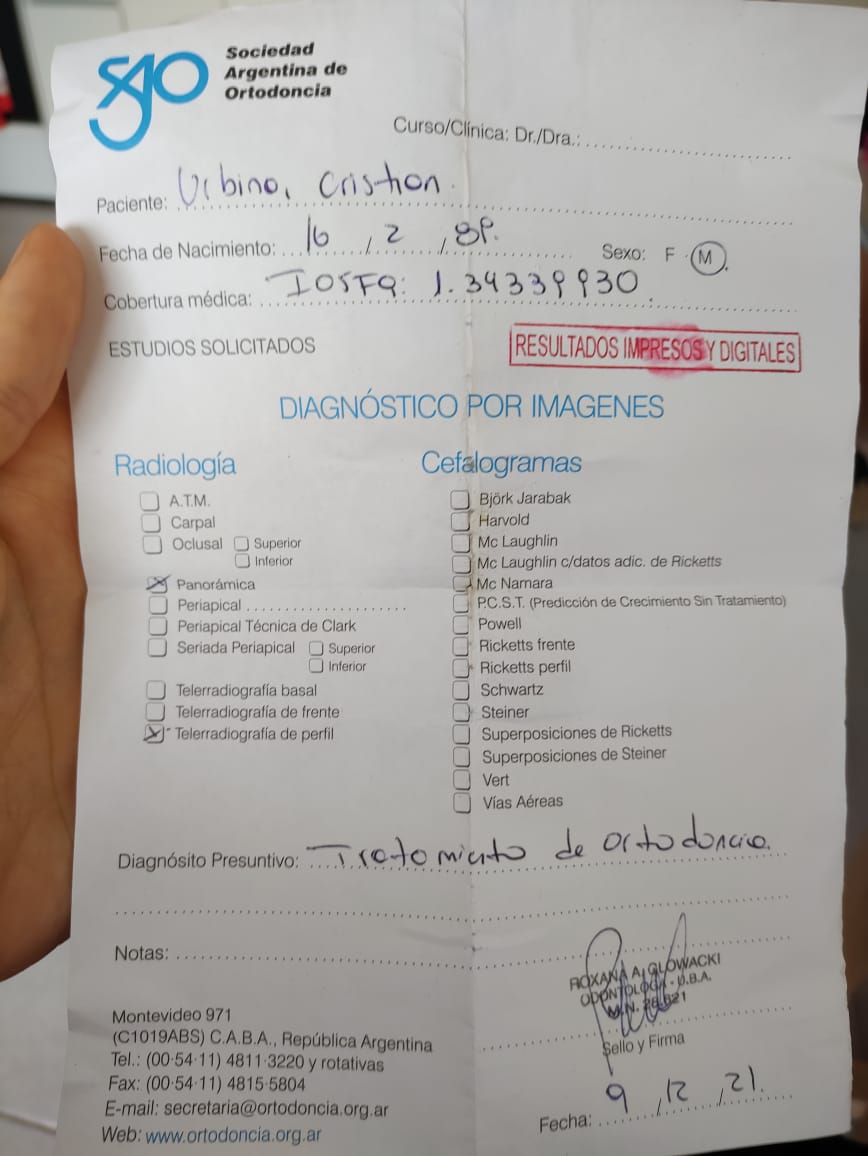 sao
Sociedad
Argentina de
Ortodoncia
Curso/Clínica: Dr./Dra.:
Paciente: Urbino, Cristian.
Fecha de Nacimiento: 16, 2, 89. Sexo: F M
Cobertura médica: IOSFA: 1.34339930
ESTUDIOS SOLICITADOS
RESULTADOS IMPRESOS Y DIGITALES
DIAGNÓSTICO POR IMAGENES
Radiología
A.T.M.
Carpal
Oclusal Superior
Inferior
Panorámica
Periapical
Periapical Técnica de Clark
Seriada Periapical Superior
Inferior
Telerradiografía basal
Telerradiografía de frente
Telerradiografía de perfil
Cefalogramas
Björk Jarabak
Harvold
Mc Laughlin
Mc Laughlin c/datos adic. de Ricketts
Mc Namara
P.C.S.T. (Predicción de Crecimiento Sin Tratamiento)
Powell
Ricketts frente
Ricketts perfil
Schwartz
Steiner
Superposiciones de Ricketts
Superposiciones de Steiner
Vert
Vías Aéreas
Diagnósito Presuntivo: Tratamiento de ortodoncia.
Notas:
ROXANA A. GLOWACKI
ODONTOLOGA - U.B.A.
M.N.
Sello y Firma
Fecha: 9, 12, 21.
Montevideo 971
(C1019ABS) C.A.B.A., República Argentina
Tel.: (00·54·11) 4811·3220 y rotativas
Fax: (00·54·11) 4815·5804
E-mail: secretaria@ortodoncia.org.ar
Web: www.ortodoncia.org.ar